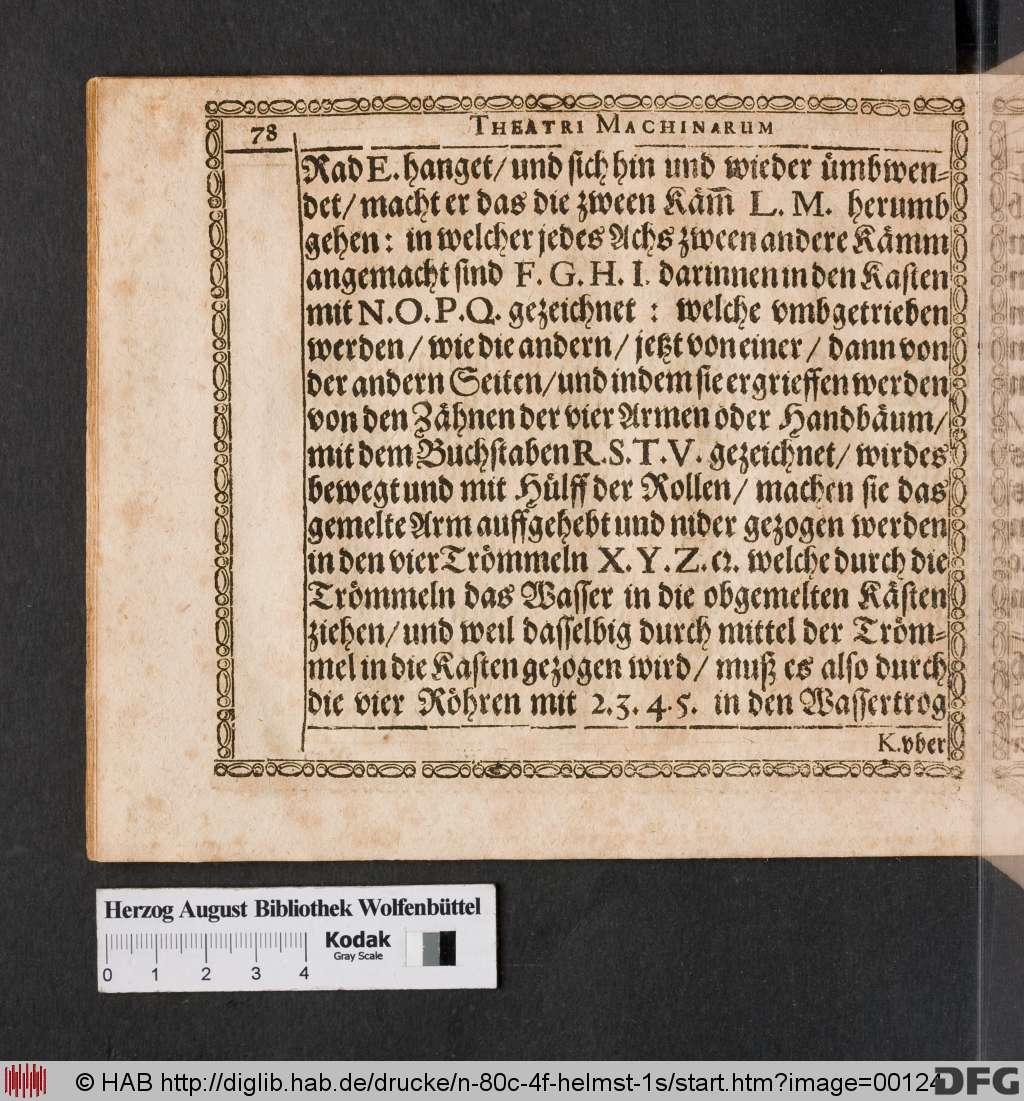 78
THEATRI MACHINARUM
Rad E. hanget/ und sich hin und wieder ümbwen-
det/ macht er das die zween Käm̅ L. M. herumb
gehen: in welcher jedes Achs zween andere Kämm
angemacht sind F. G. H. I. darinnen in den Kasten
mit N. O. P. Q. gezeichnet : welche vmbgetrieben
werden/ wie die andern/ jetzt von einer/ dann von
der andern Seiten/ und indem sie ergrieffen werden
von den Zähnen der vier Armen oder Handbäum/
mit dem Buchstaben R. S. T. V. gezeichnet/ wird es
bewegt und mit Hülff der Rollen/ machen sie das
gemelte Arm auffgehebt und nider gezogen werden
in den vier Trömmeln X. Y. Z. Ω. welche durch die
Trömmeln das Wasser in die obgemelten Kästen
ziehen/ und weil dasselbig durch mittel der Tröm-
mel in die Kasten gezogen wird/ muß es also durch
die vier Röhren mit 2. 3. 4. 5. in den Wassertrog
K. vber
Herzog August Bibliothek Wolfenbüttel
Kodak
Gray Scale
0 1 2 3 4
© HAB http://diglib.hab.de/drucke/n-80c-4f-helmst-1s/start.htm?image=00124
DFG